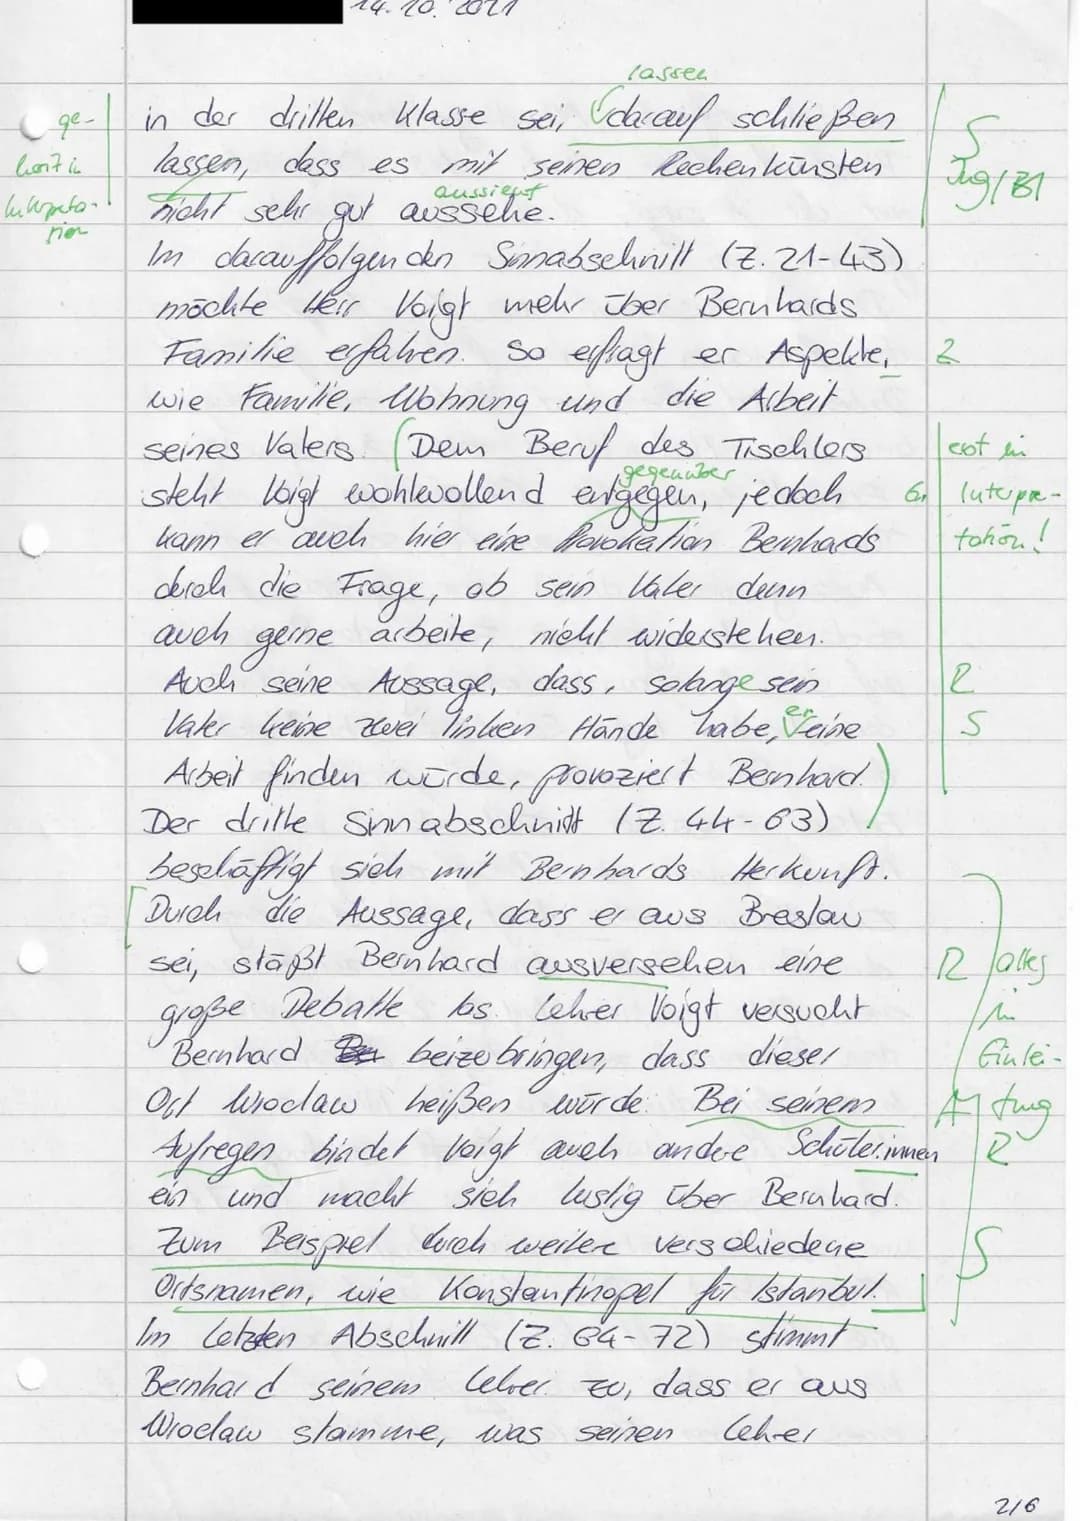 14.10.2021
lassen
in der dritten Klasse sei, darauf schließen
ge-
hört in
Interpreta-
tion
S
lassen, dass es mit seinen Rechenkünsten
Zug/B1
aussieht
nicht sehr gut aussehe.
Im darauffolgenden Sinnabschnitt (Z. 21-43)
möchte Herr Voigt mehr über Bernhards
Familie erfahren. So erfragt er Aspekte,
Z
wie Familie, Wohnung und die Arbeit
seines Vaters. (Dem Beruf des Tischlers
erst in
gegenüber
steht Voigt wohlwollend entgegen, jedoch
Gr
Interpre-
kann er auch hier eine Provokation Bernhards
tation!
durch die Frage, ob sein Vater denn
auch gerne arbeite, nicht widerstehen.
Auch seine Aussage, dass, solange sein
R
er
Vater keine zwei linken Hände habe, eine
S
Arbeit finden würde, provoziert Bernhard.)
Der dritte Sinnabschnitt (Z. 44-63)
beschäftigt sich mit Bernhards Herkunft.
[Durch die Aussage, dass er aus Breslau
sei, stäßt Bernhard ausversehen eine
R
alles
große Debatte los. Lehrer Voigt versucht
in
Bernhard beizubringen, dass dieser
Einlei-
Ort Wroclaw heißen würde. Bei seinem
A
tung
Aufregen bindet Voigt auch andere Schüler.innen
R
ein und macht sich lustig über Bernhard.
Zum Beispiel durch weitere verschiedene
S
Ortsnamen, wie Konstantinopel für Istanbul.]
Im letzten Abschnitt (Z. 64-72) stimmt
Bernhard seinem Lehrer zu, dass er aus
Wroclaw stamme, was seinen Lehrer
2/6